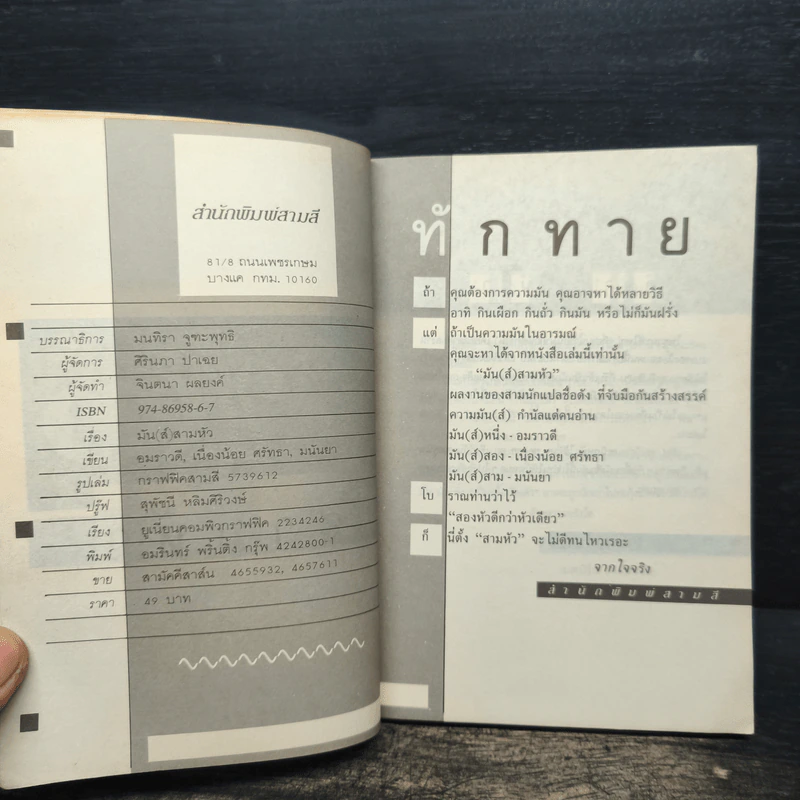 สำนักพิมพ์สามสี
81/8 ถนนเพชรเกษม
บางแค กทม. 10160
บรรณาธิการ มนทิรา จูฑะพุทธิ
ผู้จัดการ ศิรินภา ปาเฉย
ผู้จัดทำ จินตนา ผลยงค์
ISBN 974-86958-6-7
เรื่อง มัน(ส์)สามหัว
เขียน อมราวดี, เนื่องน้อย ศรัทธา, มนันยา
รูปเล่ม กราฟฟิคสามสี 5739612
ปรู๊ฟ สุพัชนี หลิมศิริวงษ์
เรียง ยูเนี่ยนคอมพิวกราฟฟิค 2234246
พิมพ์ อมรินทร์ พริ้นติ้ง กรุ๊พ 4242800-1
ขาย สามัคคีสาส์น 4655932, 4657611
ราคา 49 บาท
ทักทาย
ถ้า คุณต้องการความมัน คุณอาจหาได้หลายวิธี
อาทิ กินเผือก กินถั่ว กินมัน หรือไม่ก็มันฝรั่ง
แต่ ถ้าเป็นความมันในอารมณ์
คุณจะหาได้จากหนังสือเล่มนี้เท่านั้น
“มัน(ส์)สามหัว”
ผลงานของสามนักแปลชื่อดัง ที่จับมือกันสร้างสรรค์
ความมัน(ส์) กำนัลแด่คนอ่าน
มัน(ส์)หนึ่ง - อมราวดี
มัน(ส์)สอง - เนื่องน้อย ศรัทธา
มัน(ส์)สาม - มนันยา
โบ ราณท่านว่าไว้
“สองหัวดีกว่าหัวเดียว”
ก็ นี่ตั้ง “สามหัว” จะไม่ดีทนไหวเรอะ
จากใจจริง
สำนักพิมพ์สามสี